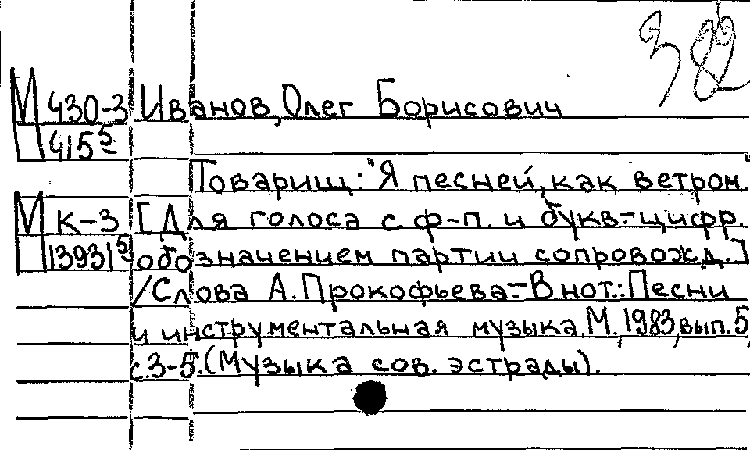 382
М 430-3 Иванов, Олег Борисович
П 415
Товарищ: "Я песней, как ветром
М К-3 [Для голоса с ф-п. и букв-цифр.
П 13931 обозначением партии сопровожд.]
/Слова А. Прокофьева.-В нот.: Песни
и инструментальная музыка. М., 1983, вып. 5,
с 3-5. (Музыка сов. эстрады).